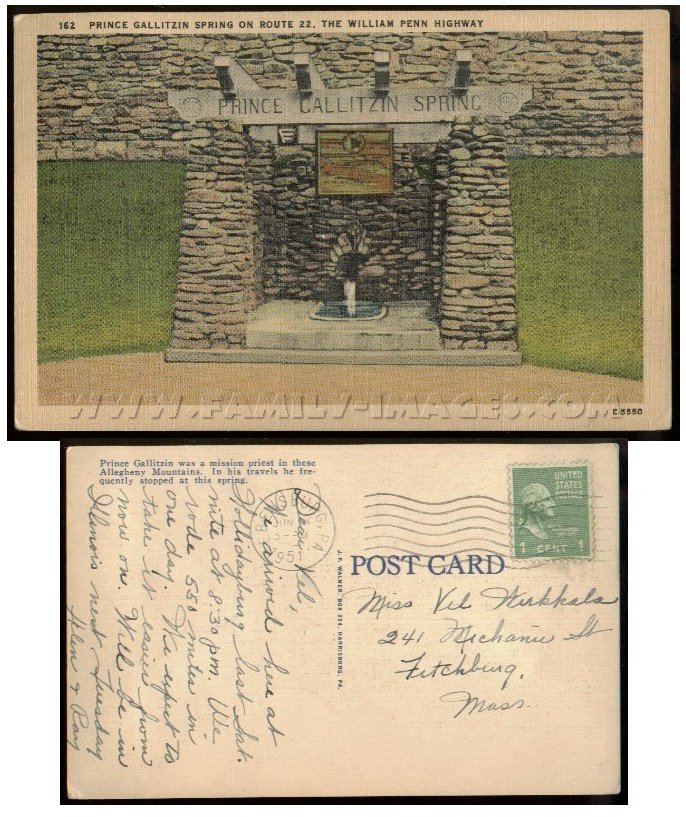 162 PRINCE GALLITZIN SPRING ON ROUTE 22, THE WILLIAM PENN HIGHWAY
PRINCE GALLITZIN SPRING
WWW.FAMILY-IMAGES.COM
Prince Gallitzin was a mission priest in these
Allegheny Mountains. In his travels he fre-
quently stopped at this spring.
Dear Vel,
We arrived here at
Hollidayburg last Sat.
nite at 8:30 p.m. We
rode 550 miles in
one day. We expect to
take it easier from
now on. Will be in
Illinois next Tuesday
Helen & Ray
J. P. WALMER, BOX 224, HARRISBURG, PA.
UNITED
STATES
POSTAGE
1 CENT 1
POST CARD
Miss Vel Wirkkala
241 Mechanic St
Fitchburg,
Mass.